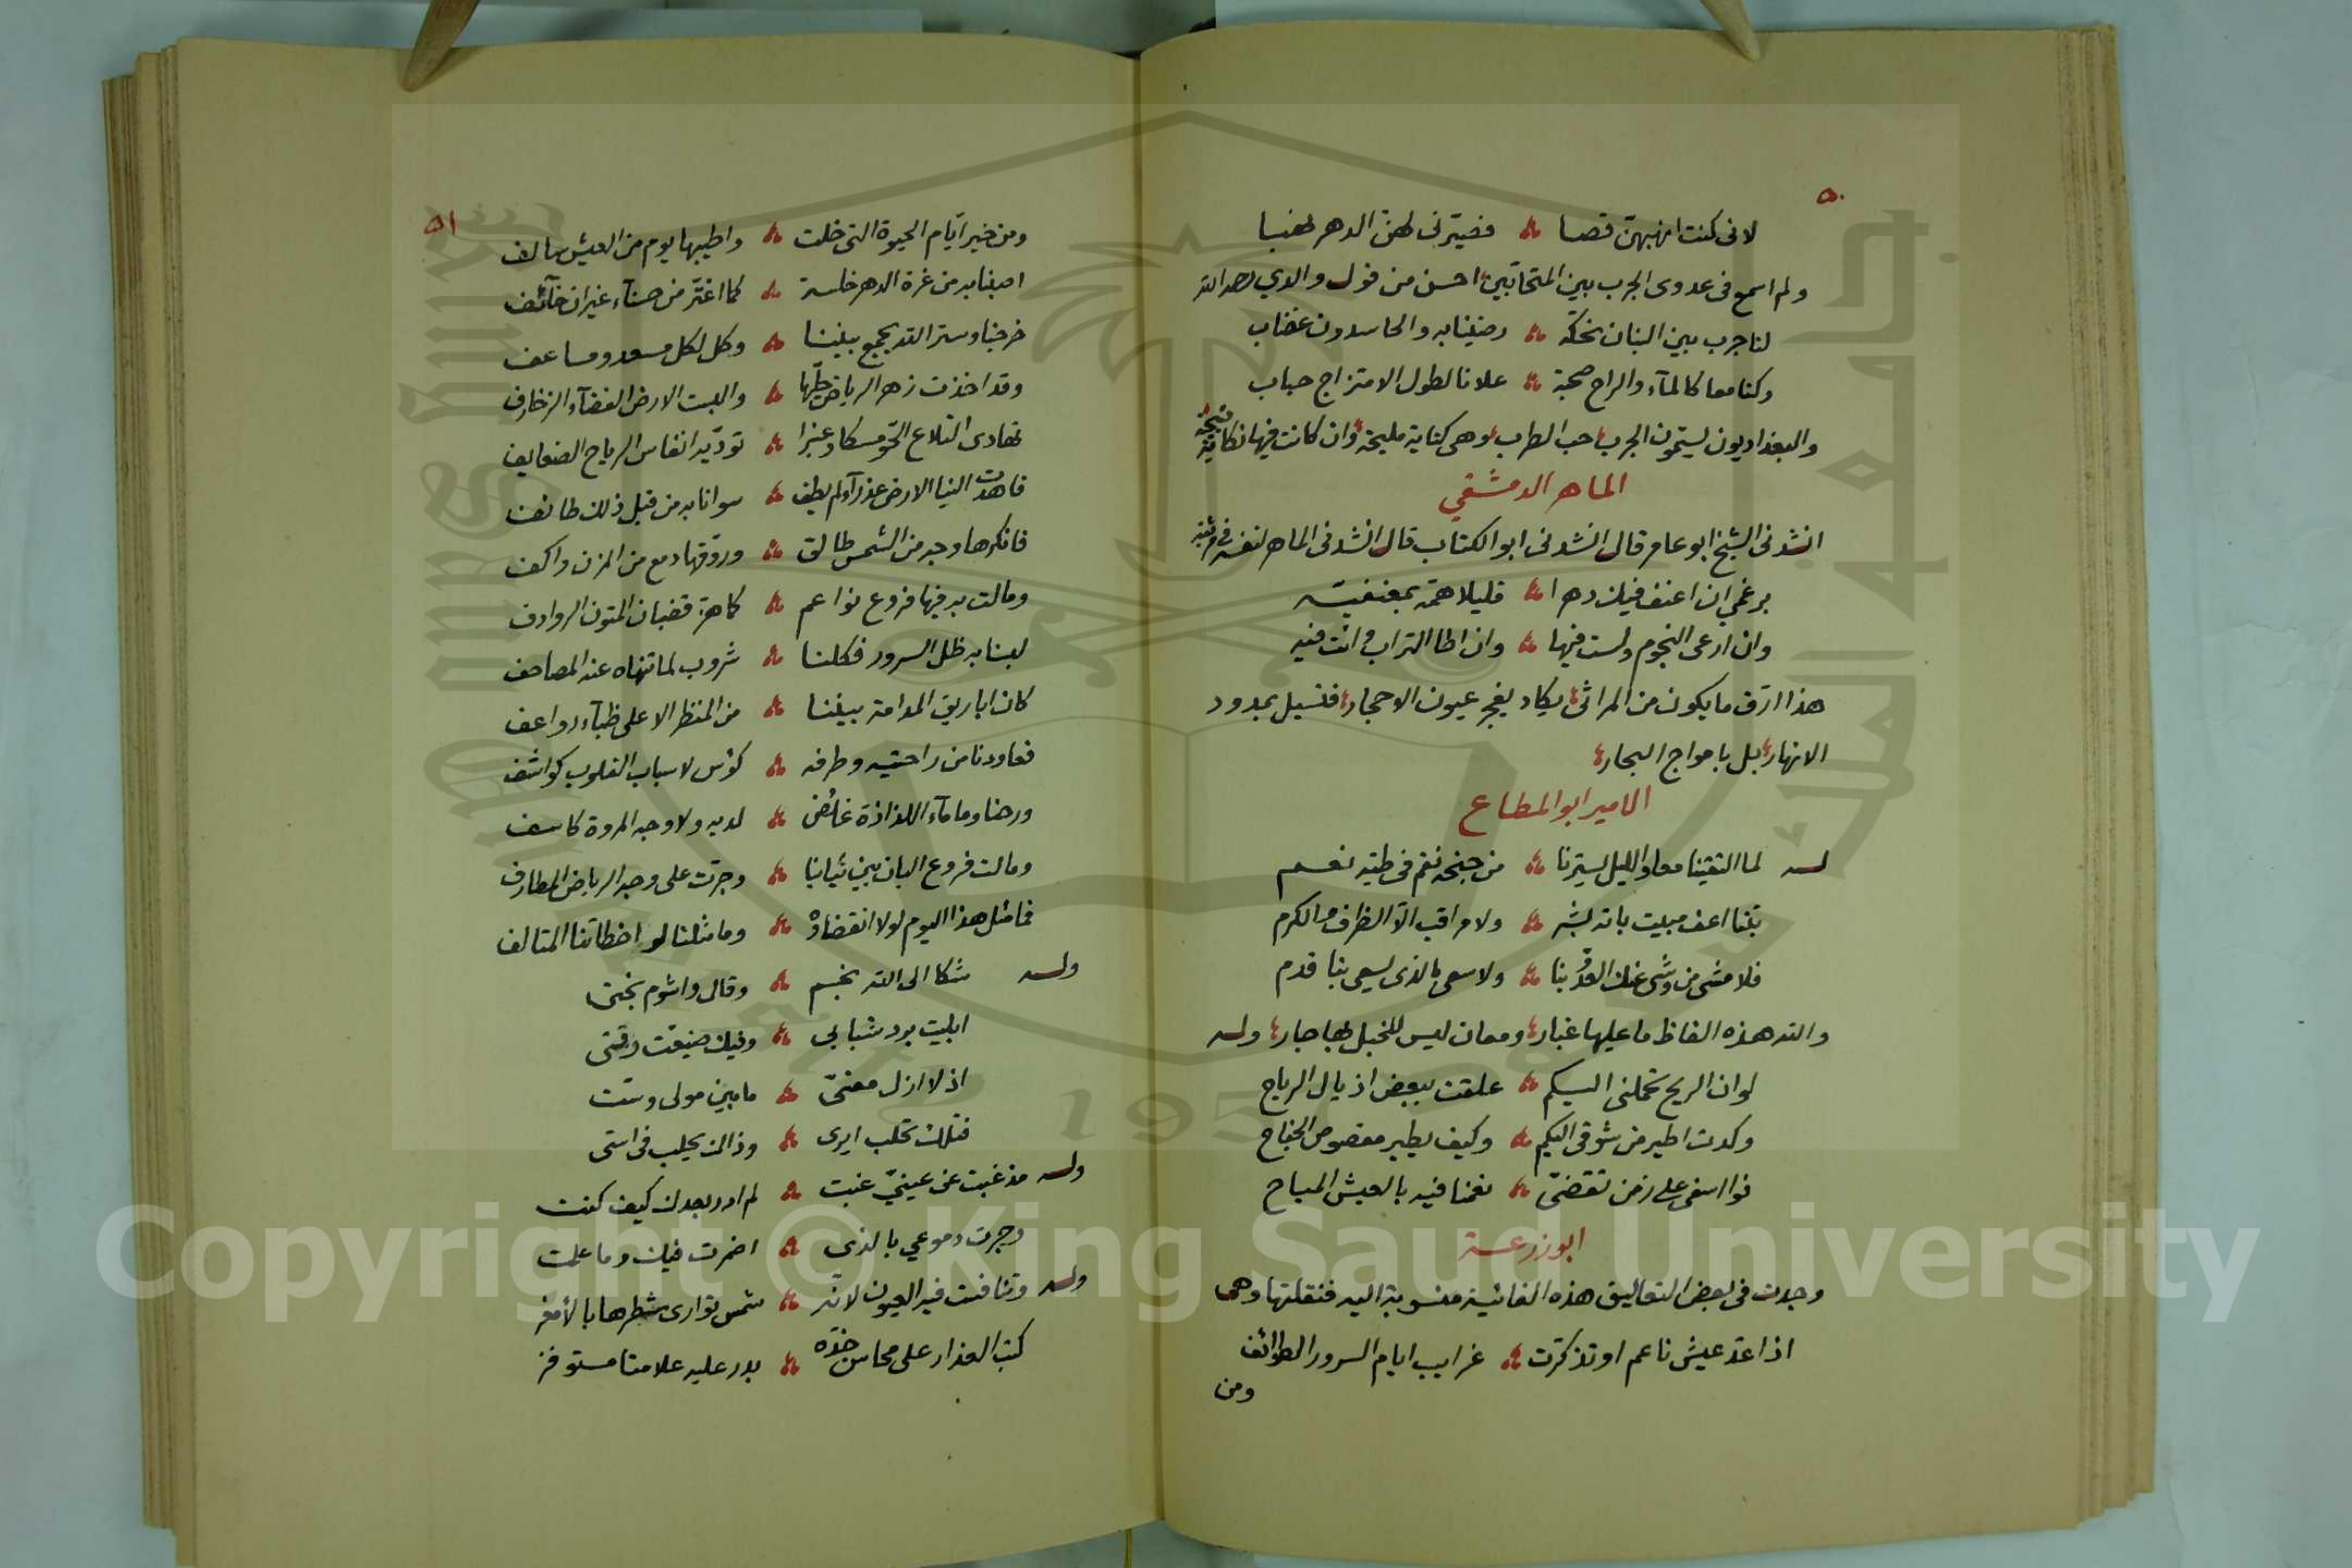 ٥٠
لانى كنت انهبهن قصا ؞ فصيّرنى لهنّ الدهر نهبا
ولم اسمع فى عدوى الجرب بين المتحابّين احسن من قول والدي رحمه الله
لنا جرب بين البنان نحكّه ؞ رضينا به والحاسدون غضاب
وكنا معا كالمآء والراح صحبة ؞ علانا لطول الامتزاج حباب
والبغداديون ليسمّون الجرب حب الطرب وهى كناية مليحة وان كانت فيها نكاية قبيحة
الماهر الدمشقي
انشدنى الشيخ ابو عامر قال انشدنى ابو الكتاب قال انشدنى الماهر لنفسه فى مرثية
برغمي ان اعنف فيك دهرا ؞ قليلا همّه بمعنفيه
وان ارعى النجوم ولست فيها ؞ وان اطا التراب وانت فيه
هذا ارق ما يكون من المراثى يكاد يفجر عيون الاحجار فتسيل بمدود
الانهار بل بامواج البحار
الامير ابو المطاع
له لما التقينا معا والليل يسترنا ؞ من جنحه نعم فى طيه نعم
بتنا اعف مبيت باته بشر ؞ ولا مراقب الّا الظرف والكرم
فلا مشى من وشى عند العدوّ بنا ؞ ولا سعى بالذى يسعى بنا قدم
والله هذه الفاظ ما عليها غبار ومعان ليس للخبل بها جار وله
لو ان الريح تحملنى اليكم ؞ علقت ببعض اذيال الرياح
وكدت اطير من شوقى اليكم ؞ وكيف يطير مقصوص الجناح
فوا اسفى على زمن تقضّى ؞ نعمنا فيه بالعيش المباح
ابو زرعة
وجدت فى بعض التعاليق هذه الفائية منسوبة اليه فنقلتها وهى
اذا عدّ عيش ناعم او تذكرت ؞ غرايب ايام السرور الطوائف
ومن
٥١
ومن خير ايّام الحيوة التى خلت ؞ واطيبها يوم من العيش سالف
اصبنا به من غرة الدهر خلسة ؞ كما اغترّ من حسنآء غيران خآئف
خرجنا وستر الله يجمع بيننا ؞ وكل لكل مسعد ومساعف
وقد اخذت زهر الرياض حليّها ؞ والبست الارض الفضآء الزخارف
تهادى التلاع الحّو مسكا وعنبرا ؞ تودّيه انفاس الرياح الضعايف
فاهدت الينا الارض عذرآء لم يطف ؞ سوانا به من قبل ذلك طائف
فانكرها وجه من الشمس طالق ؞ وروّقها دمع من المزن واكف
ومالت به فيها فروع نواعم ؞ كما هزّ قضبان المتون الروادف
لبسنا به ظل السرور فكلنا ؞ شروب لما تنهاه عنه المصاحف
كان اباريق المدامة بيننا ؞ من المنظر الاعلى ظبآء رواعف
فعاودنا من راحتيه وطرفه ؞ كؤس لاسباب القلوب كواشف
ورحنا وما مآء اللذاذة غايض ؞ لديه ولا وجه المروة كاسف
ومالت فروع البان بين ثيابنا ؞ وجرّت على وجه الرياض المطارف
فما مثل هذا اليوم لولا انقضاؤه ؞ وما مثلنا لو اخطاتنا المتالف
وله شكا الى الله بختىم ؞ وقال واشوم بختى
ابليت برد شبابي ؞ وفيك ضيعت وقتى
اذ لا ازل معنّى ؞ ما بين مولى وستّ
فتلك تحلب ايرى ؞ وذالك يحلب فى استى
وله مذ غبت عن عينيّ غبت ؞ لم ادر بعدك كيف كنت
وجرت دموعي بالذى ؞ اضمرت فيك وما علمت
وله وتنافست فيه العيون لانّه ؞ شمس توارى شطرها بالامغر
كتب العذار على محاسن خدّه ؞ بدر عليه علامتا مستوفز
Copyright © King Saud University
1957